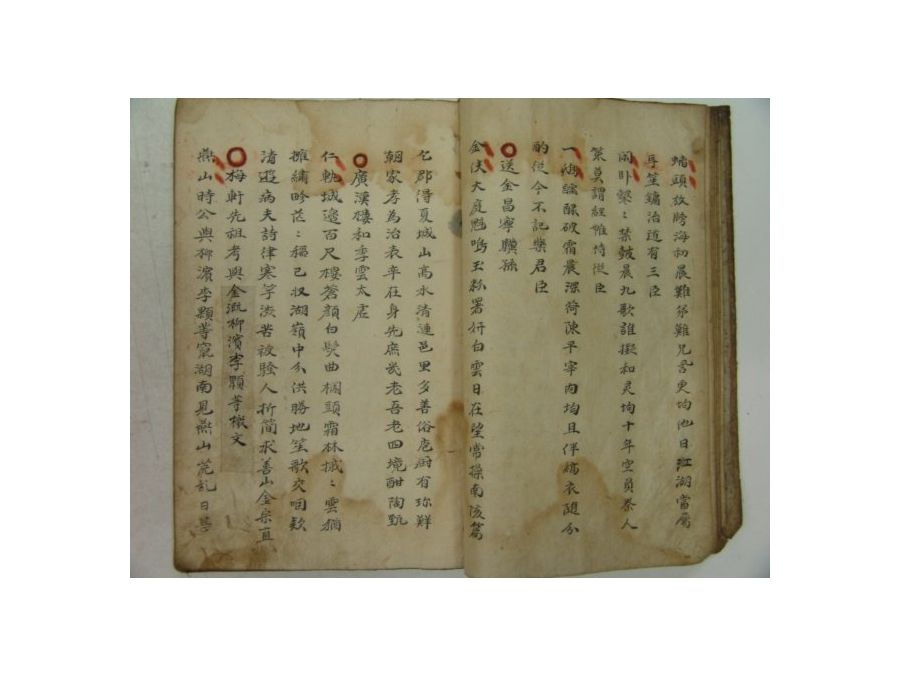 蟠頭放牓海初晨難分難兄喜更均他日江湖當屬
耳笙鏞治道有三臣
閑卧聲〻禁鼓晨九歌誰擬和灵均十年空負泰人
策莫謂經帷恃從臣
一樽醽醁破霜晨深荷陳平宰肉均且伴橘衣隨分
酌從今不記樂君臣
送金昌寧驥孫
金伕大庭魁鳴玉粉署妍白雲日在望常操南陔篇
乞郡得夏城山高水清連邑里多善俗庖廚有珍鮮
朝家孝為治表率在身先庶幾老吾老四境酣陶甄
廣漢樓和季雲太虛
仁軌城邊百尺樓蒼顔白髮曲欄頭霜林摵〻雲猶
擁繡畛茫〻稻已收湖嶺中分供勝地笙歌交咽欸
清遊病夫詩律寒芋淡苦被騷人折簡求善山金宗直
梅軒先祖考與金濺柳濱李顆等檄文
燕山時公與柳濱李顆等竄湖南見燕山荒乱日甚